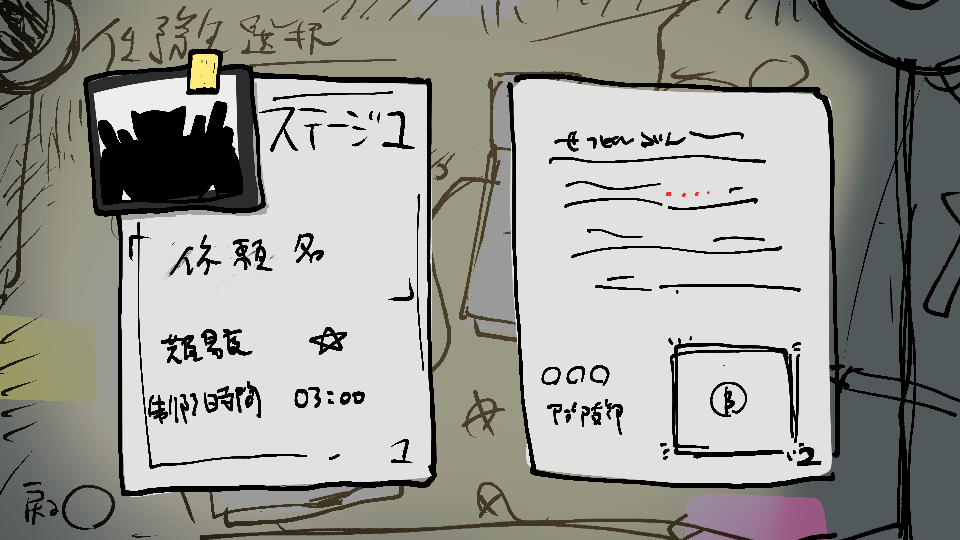 任務選択
ステージ1
依頼名
難易度 ☆
制限時間 03:00
1
せつめいぶん
〇〇〇
B
2
戻る